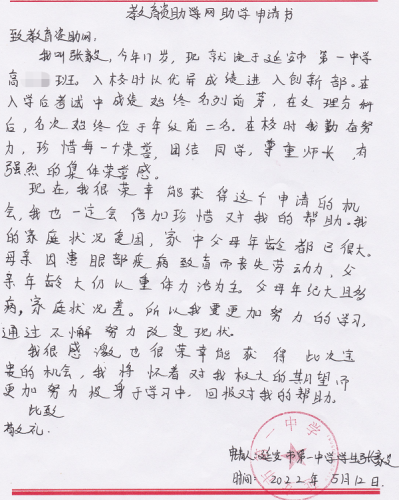 教育资助网助学申请书
致教育资助网:
我叫张毅,今年17岁,现就读于延安市第一中学
高 班。入校时以优异成绩进入创新部。在
入学后考试中成绩始终名列前茅,在文理分科
后,名次始终位于年级前二名。在校时我勤奋努
力,珍惜每一个荣誉,团结同学,尊重师长,有
强烈的集体荣誉感。
现在,我很荣幸能获得这个申请的机
会,我也一定会倍加珍惜对我的帮助。我
的家庭状况危困,家中父母年龄都已很大。
母亲因患眼部疾病致盲而丧失劳动力,父
亲年龄大仍以重体力活为主。父母年纪大且多
病,家庭状况差。所以我要更加努力的学习,
通过不懈努力改变现状。
我很感激也很荣幸能获得此次宝
贵的机会,我将怀着对我极大的期望而
更加努力投身于学习中,回报对我的帮助。
此致
敬礼。
一中学
申请人:延安市第一中学学生张毅
时间:2022年5月12日.